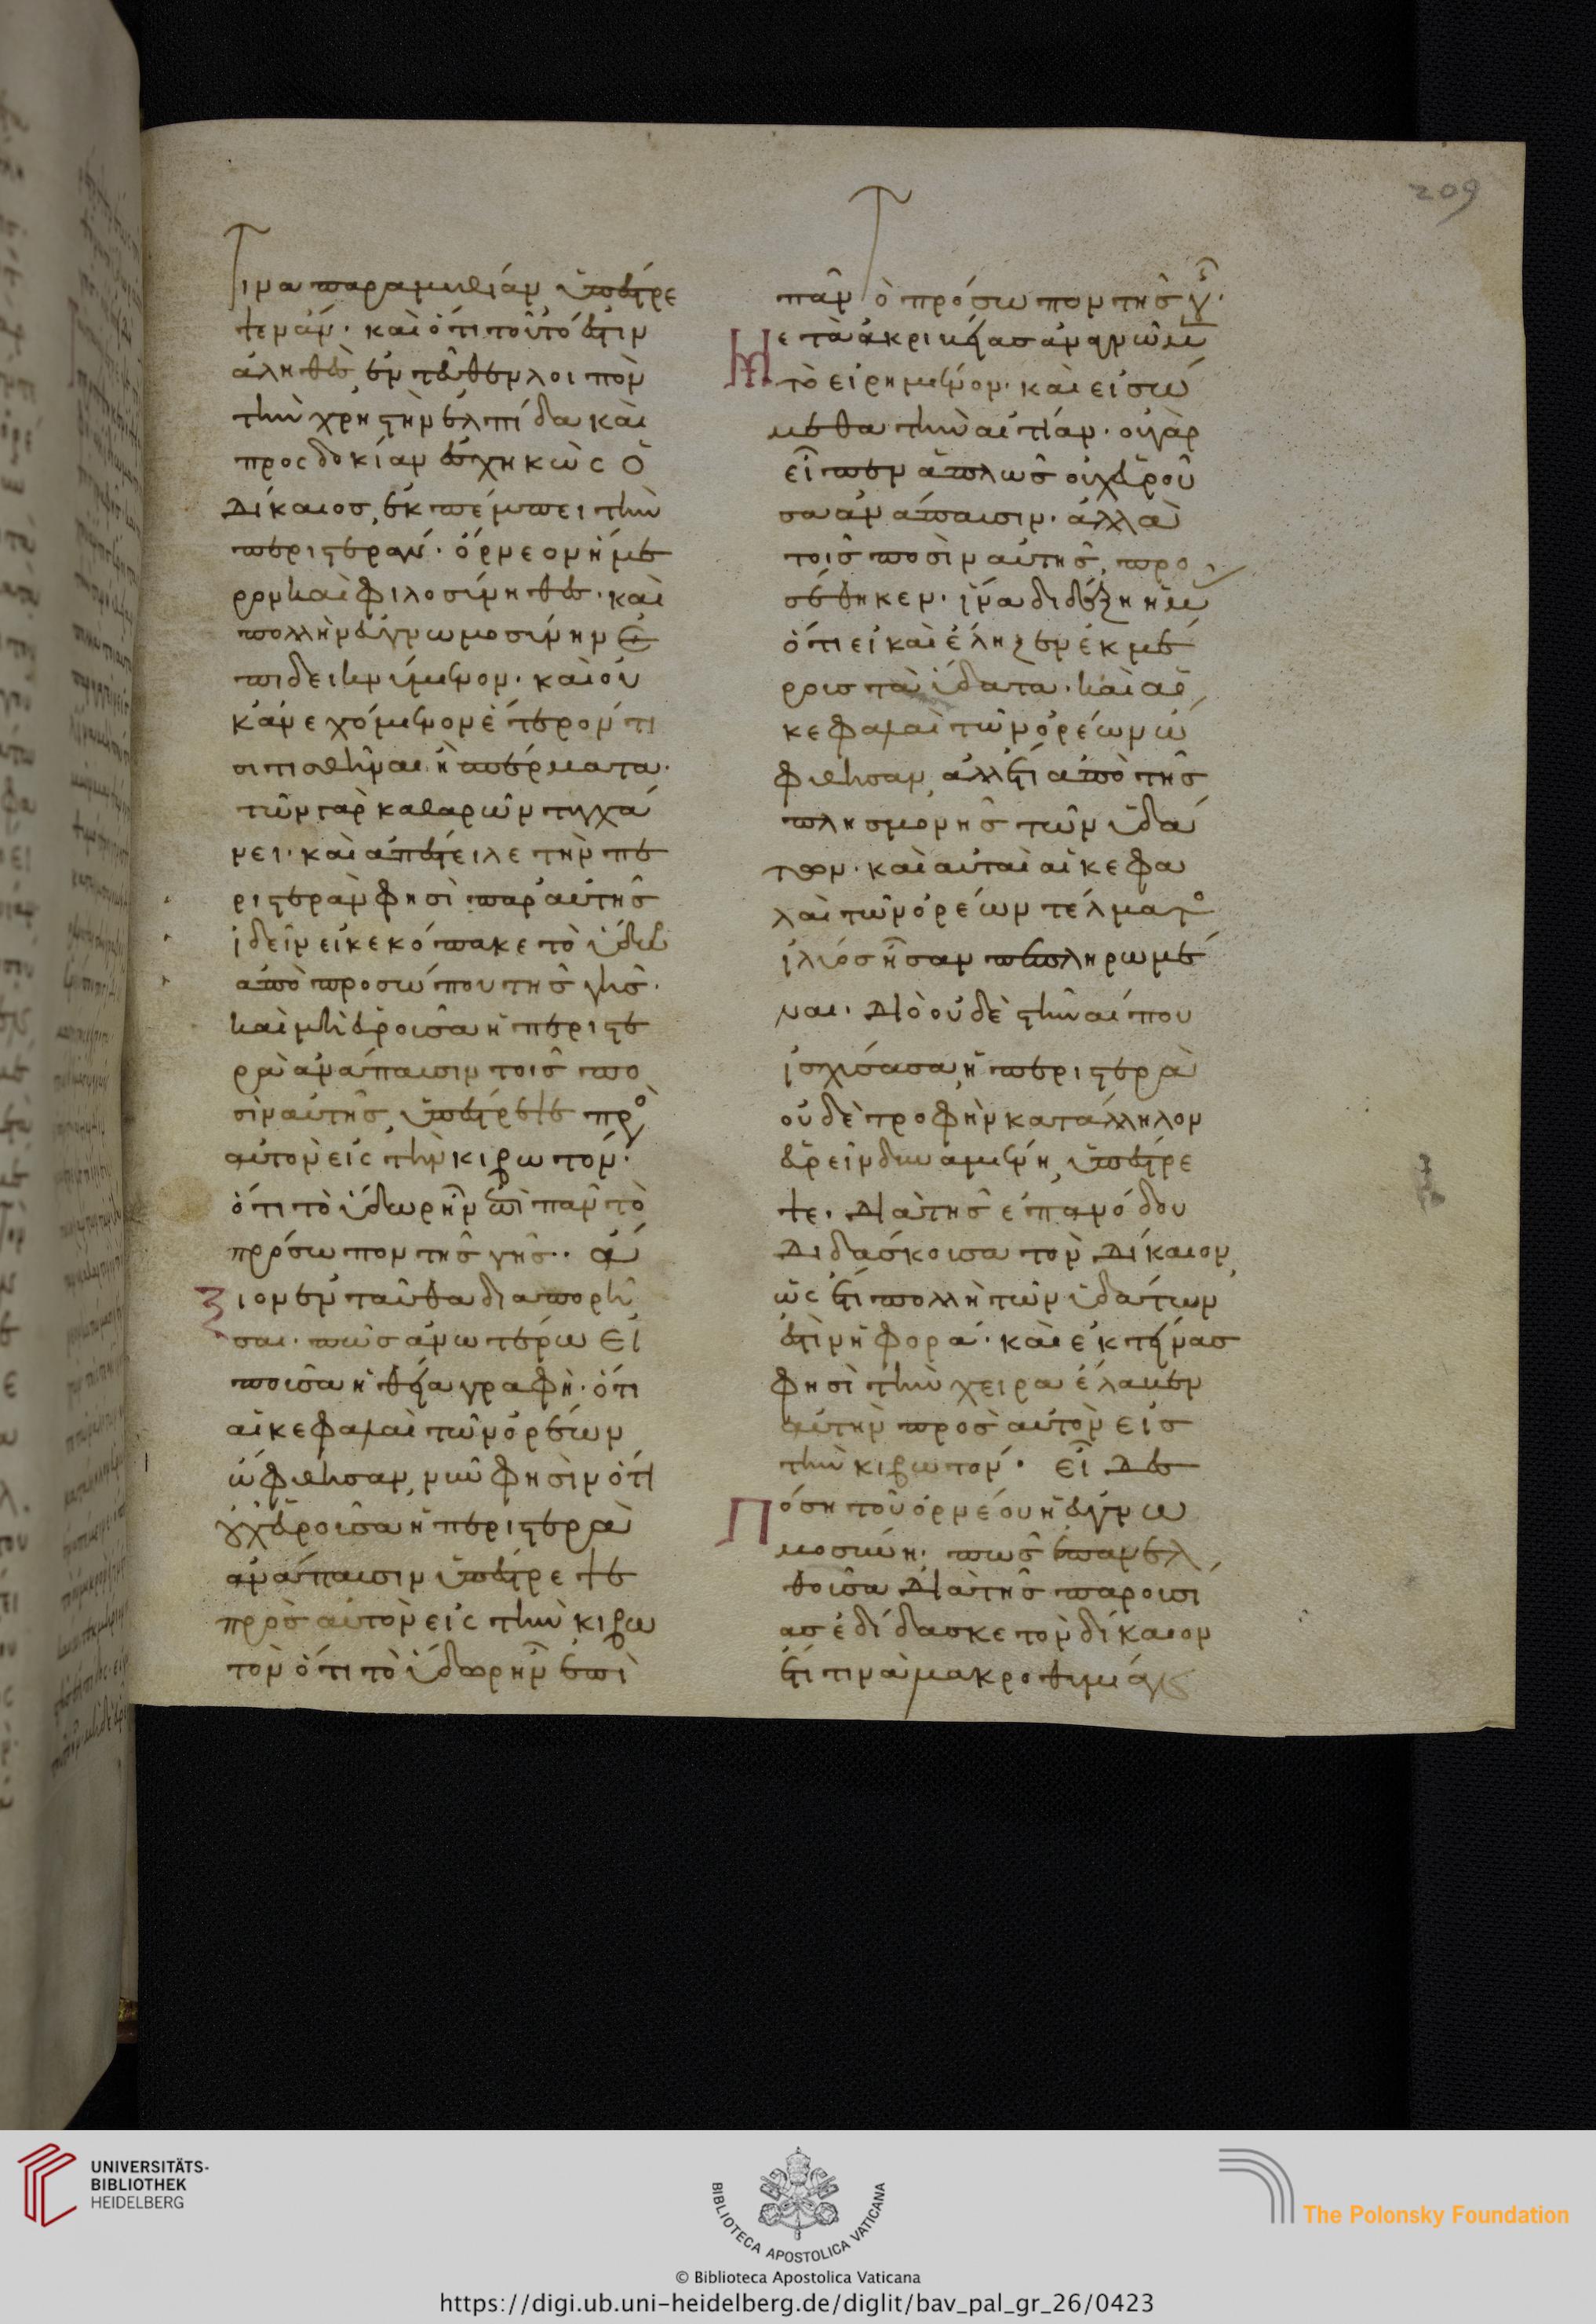 209
τινα παραμυθίαν ὑποστρέ
ψειεν ἄν· καὶ ὅτι τοῦτό ἐστιν
ἀληθὲς, ἐντεῦθεν λοιπὸν
τὴν χρηστὴν ἐλπίδα καὶ
προσδοκίαν ἐσχηκὼς ὁ
δίκαιος, ἐκπέμπει τὴν
περιστεράν· ὄρνεον ἥμε
ρον καὶ φιλοσύνηθες· καὶ
πολλὴν εὐγνωμοσύνην ἐ
πιδεικνύμενον· καὶ οὐ
κ ἀνεχόμενον ἕτερόν τι
σιτισθῆναι ἢ σπέρματα·
τῶν γὰρ καθαρῶν τυγχά
νει· καὶ ἀπέστειλε τὴν πε
ριστερὰν φησὶ παρ' αὐτῆς
ἰδεῖν εἰ κεκόπακε τὸ ὕδωρ
ἀπὸ προσώπου τῆς γῆς·
καὶ μὴ εὑροῦσα ἡ περιστε
ρὰ ἀνάπαυσιν τοῖς πο
σὶν αὐτῆς, ὑπέστρεψε πρὸς
αὐτὸν εἰς τὴν κιβωτόν·
ὅτι τὸ ὕδωρ ἦν ἐπὶ πᾶν τὸ
πρόσωπον τῆς γῆς·· ἄ
ξιον ἐνταῦθα διαπορῆ
σαι· πῶς ἀνωτέρω εἰ
ποῦσα ἡ θεία γραφὴ· ὅτι
αἱ κεφαλαὶ τῶν ὀρέων
ὤφθησαν, νῦν φησὶν ὅτι
οὐχ εὑροῦσα ἡ περιστερὰ
ἀνάπαυσιν ὑπέστρεψε
πρὸς αὐτὸν εἰς τὴν κιβω
τὸν ὅτι τὸ ὕδωρ ἦν ἐπὶ
πᾶν τὸ πρόσωπον τῆς γῆς·
Μετὰ ἀκριβείας ἀναγνῶμεν
τὸ εἰρημένον· καὶ εἰσό
μεθα τὴν αἰτίαν· οὐ γὰρ
εἶπεν ἁπλῶς οὐχ εὑροῦ
σα ἀνάπαυσιν· ἀλλὰ
τοῖς ποσὶν αὐτῆς, προ
σέθηκεν· ἵνα διδάξη ἡμᾶς
ὅτι εἰ καὶ ἔληξεν ἐκ μέ
ρους τὰ ὕδατα· καὶ αἱ
κεφαλαὶ τῶν ὀρέων ὤ
φθησαν, ἀλλ' ἔτι ἀπὸ τῆς
πλησμονῆς τῶν ὑδά
των· καὶ αὐταὶ αἱ κεφα
λαὶ τῶν ὀρέων τέλματος
ἰλύος ἦσαν πεπληρωμέ
ναι· Διὸ οὐδὲ στῆναί που
ἰσχύσασα, ἡ περιστερὰ
οὐδὲ τροφὴν κατάλληλον
εὑρεῖν δυναμένη, ὑπέστρε
ψε· Διὰ τῆς ἐπανόδου
Διδάσκουσα τὸν Δίκαιον,
ὡς ἔτι πολλὴ τῶν ὑδάτων
ἐστὶν ἡ φορά· καὶ ἐκτείνας
φησὶ τὴν χεῖρα ἔλαβεν
αὐτὴν πρὸς αὐτὸν εἰς
τὴν κιβωτόν· εἶδες
Πόση τοῦ ὀρνέου ἡ εὐγνω
μοσύνη· πῶς ἐπανελ
θοῦσα Διὰ τῆς παρουσί
ας ἐδίδασκε τὸν δίκαιον
ἔτι τινὰ μακροθυμίας
UNIVERSITÄTS-
BIBLIOTHEK
HEIDELBERG
BIBLIOTECA APOSTOLICA VATICANA
The Polonsky Foundation
© Biblioteca Apostolica Vaticana
https://digi.ub.uni-heidelberg.de/diglit/bav_pal_gr_26/0423